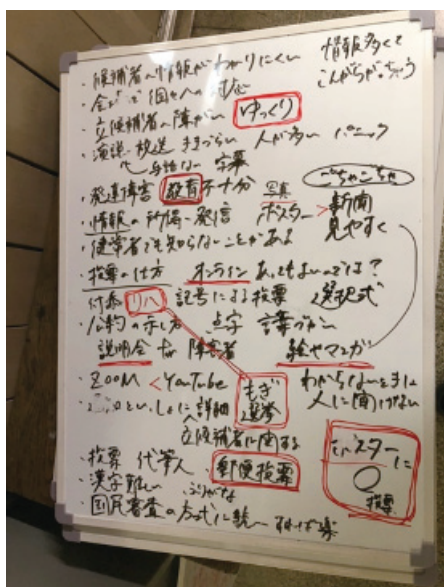 ・候補者の情報がわかりにくい 情報多くて
こんがらがっちゃう
・立候補者へ障がい ゆっくり
・演説・放送 ききづらい 人が多い パニック
手話ない 字幕
ごちゃごちゃ
・発達障害 教育不十分 写真
ポスター > 新聞
見やすく
・情報の 所得・発信
・健常者でも知らないことがある
・投票の仕方 オンライン あってもよいのでは?
付添 リハ 記号による投票 選択式
・公約の示し方 点字
説明会 for 障害者 絵やマンガ
・ZOOM < YouTube もぎ
選挙
わからないときに
人に聞けない
といっしょに 詳細
立候補者に関する
ポスターに
○
投票
・投票 代筆人 ・郵便投票
・漢字難しい ふりがな
・国民審査の方式に統一 すれば楽